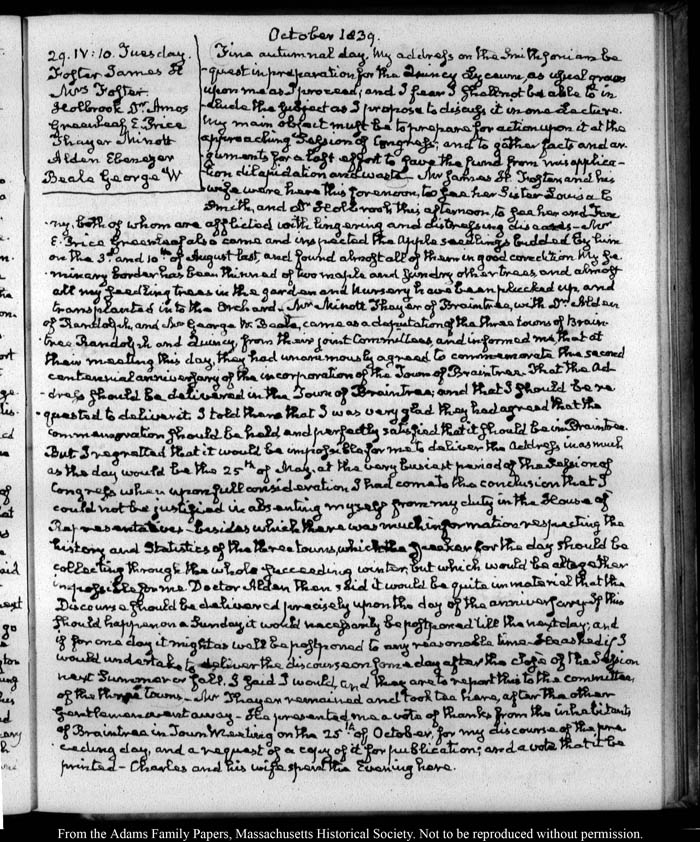 October 1839.
29. IV: 10. Tuesday.
Foster James H
Mrs Foster
Holbrook Dr. Amos
Greenleaf E. Price
Thayer Minott
Alden Ebenezer
Beale George W
Fine autumnal day. My address on the Smithsonian be
-quest in preparation for the Quincy Lyceum, as usual grows
upon me as I proceed; and I fear I shall not be able to in
clude the subject as I propose to discuss it in one Lecture.
My main object must be to prepare for action upon it at the
approaching Session of Congress; and to gather facts and ar
-guments for a last effort to save the fund from misapplica-
-tion dilapidation and waste. Mr James H. Foster, and his
wife were here this forenoon, to see her Sister Louisa C
Smith, and Dr Holbrook this afternoon, to see her and Fan
-ny, both of whom are afflicted with lingering and distressing diseases — Mr
E. Price Greenleaf also came and inspected the Apple seedlings budded by him
on the 3d. and 10th of August last, and found almost all of them in good condition. My Se
-minary border has been thinned of two maple and sundry other trees and almost
all my seedling trees in the garden and Nursery have been plucked up and
transplanted into the Orchard. Mr Minott Thayer of Braintree, with Dr. Alden
of Randolph, and Mr George W. Beale, came as a deputation of the three towns of Brain
-tree Randolph and Quincy, from their joint Committees, and informed me, that at
their meeting this day, they had unanimously agreed to commemorate the second
centennial anniversary of the incorporation of the Town of Braintree. That the Ad
-dress should be delivered in the Town of Braintree; and that I should be re
-quested to deliver it. I told them that I was very glad they had agreed that the
commemoration should be held and perfectly satisfied that it should be in Braintree.
But I regretted that it would be impossible for me to deliver the Address inasmuch
as the day would be the 25th of May, at the very busiest period of the Session of
Congress when upon full consideration I had come to the conclusion that I
could not be justified in absenting myself from my duty in the House of
Representatives — besides which there was much information respecting the
history and Statistics of the three towns, which the Speaker for the day should be
collecting through the whole succeeding winter, but which would be altogether
impossible for me. Doctor Alden then said it would be quite immaterial that the
Discourse should be delivered precisely upon the day of the anniversary. If this
should happen on a Sunday it would necessarily be postponed till the next day; and
if for one day it might as well be postponed to any reasonable time. He asked if I
would undertake to deliver the discourse on some day after the close of the Session
next Summer or fall. I said I would, and they are to report this to the committees
of the three towns. — Mr Thayer remained and took tea here, after the other
Gentlemen went away — He presented me a vote of thanks from the inhabitants
of Braintree in Town Meeting on the 25th of October, for my discourse of the pre
-ceding day, and a request of a copy of it for publication; and a vote that it be
printed — Charles and his wife spent the Evening here.
From the Adams Family Papers, Massachusetts Historical Society. Not to be reproduced without permission.